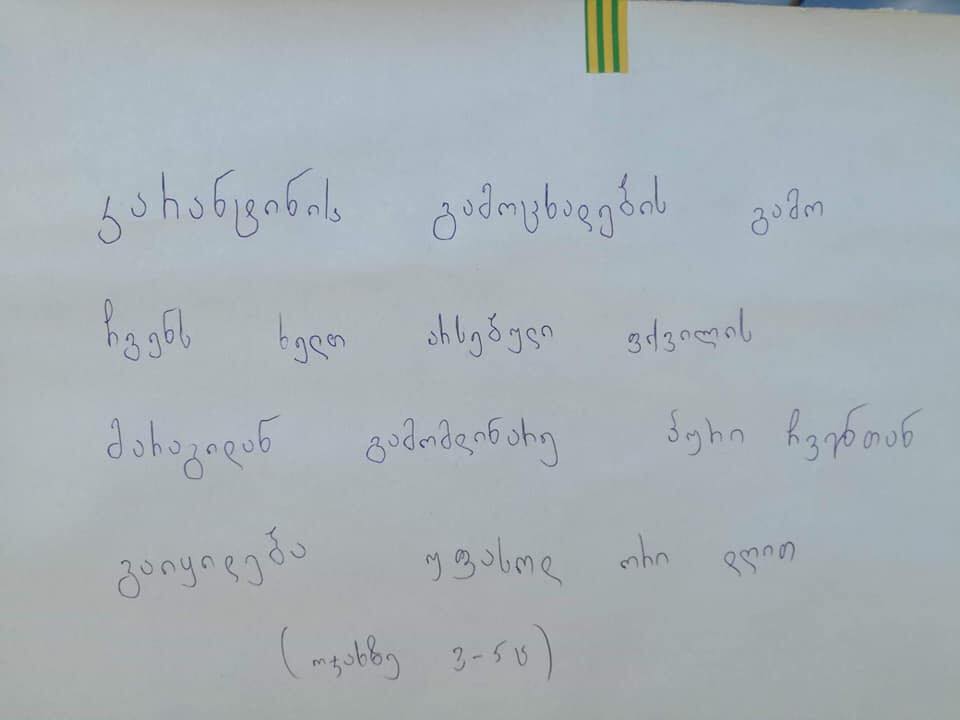 კარანტინის გამოცხადების გამო
ჩვენს ხელთ არსებული ფქვილის
მარაგიდან გამომდინარე პური ჩვენთან
გაიყიდება უფასოდ ორი დღით
(ოჯახზე 3-5ც)